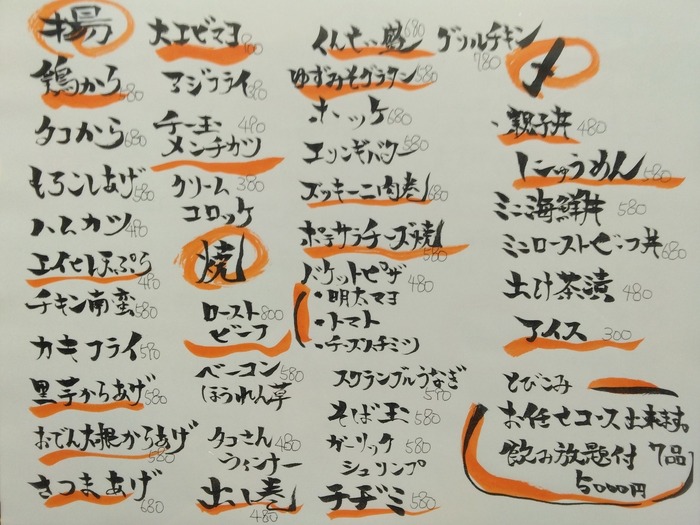 揚
鶏から 580
タコから 680
もろこしあげ 580
ハムカツ 480
エイヒレ天ぷら 480
チキン南蛮 580
カキフライ 590
里芋からあげ 580
おでん大根からあげ 580
さつまあげ 680
大エビマヨ 800
アジフライ 680
チー玉 490
メンチカツ
クリーム 380
コロッケ
焼
ロースト 800
ビーフ
ベーコン 580
ほうれん草
タコさん 480
ウィンナー
出し巻 480
くんせい鮭 680
ゆずみそグラタン 580
ホッケ 680
エリンギバター 580
ズッキーニ肉巻 680
ポテサラチーズ焼 580
バケットピザ 480
・明太マヨ
・トマト
・チーズハチミツ
スクランブルうなぎ 590
そば玉 580
ガーリック 580
シュリンプ
チヂミ 580
グリルチキン 780
〆
・親子丼 480
にゅうめん 580
ミニ海鮮丼 580
ミニローストビーフ丼 680
出汁茶漬 480
アイス 300
とびこみ
お任せコース出来ます。
飲み放題付 7品
5000円